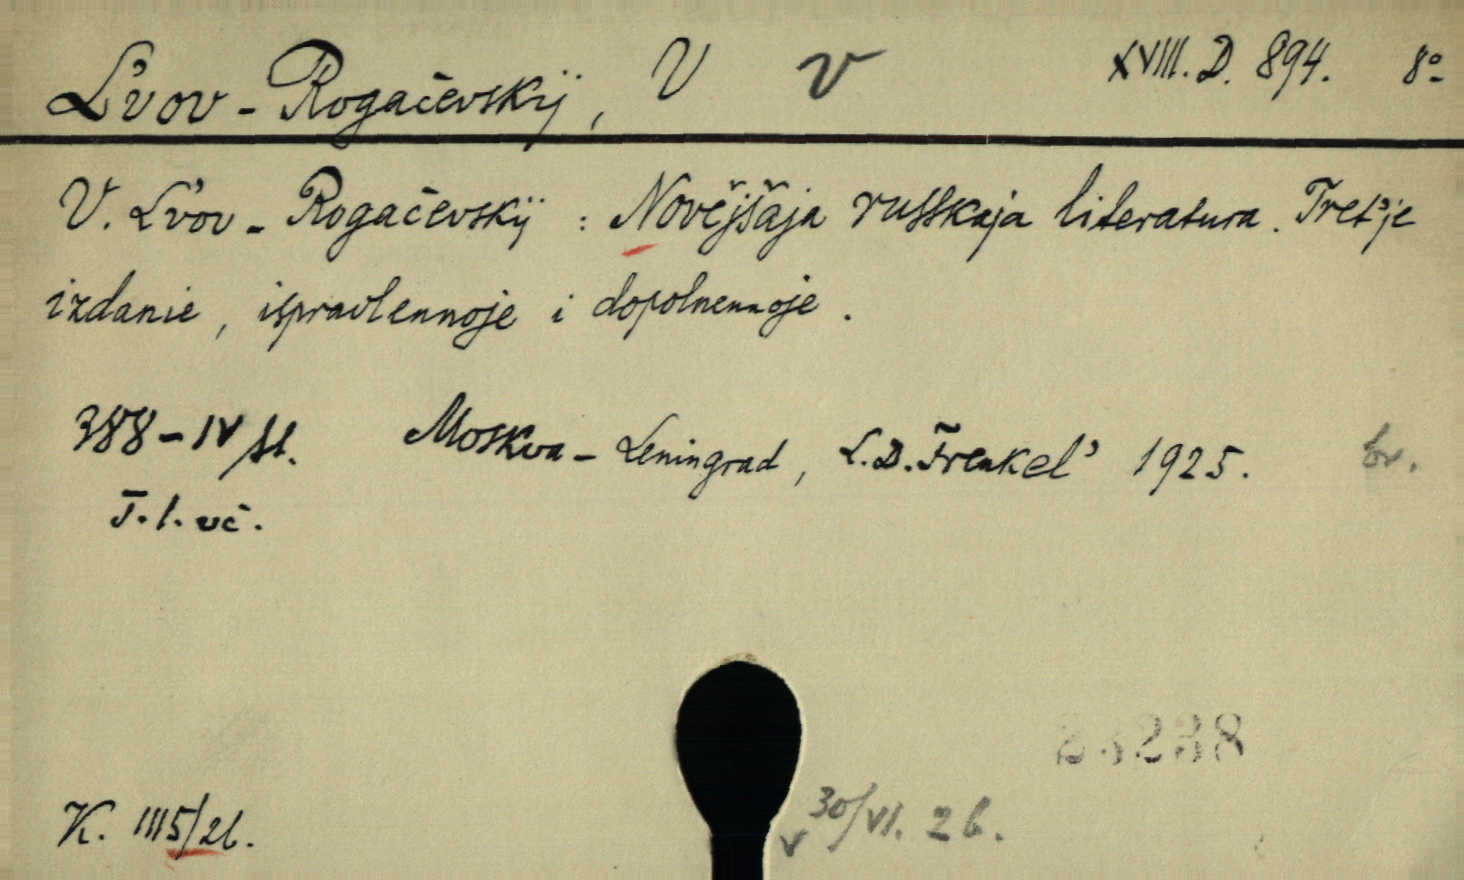 L'vov-Rogačevskij, V v XVIII. D. 894. 8°
V. L'vov-Rogačevskij : Novějšaja russkaja literatura. Tret'je
izdanie, ispravlennoje i dopolnennoje.
388-IV st. Moskva-Leningrad, L. D. Frenkel' 1925. br.
T. l. vč.
23238
K. 1115/26. v 30/VI. 26.